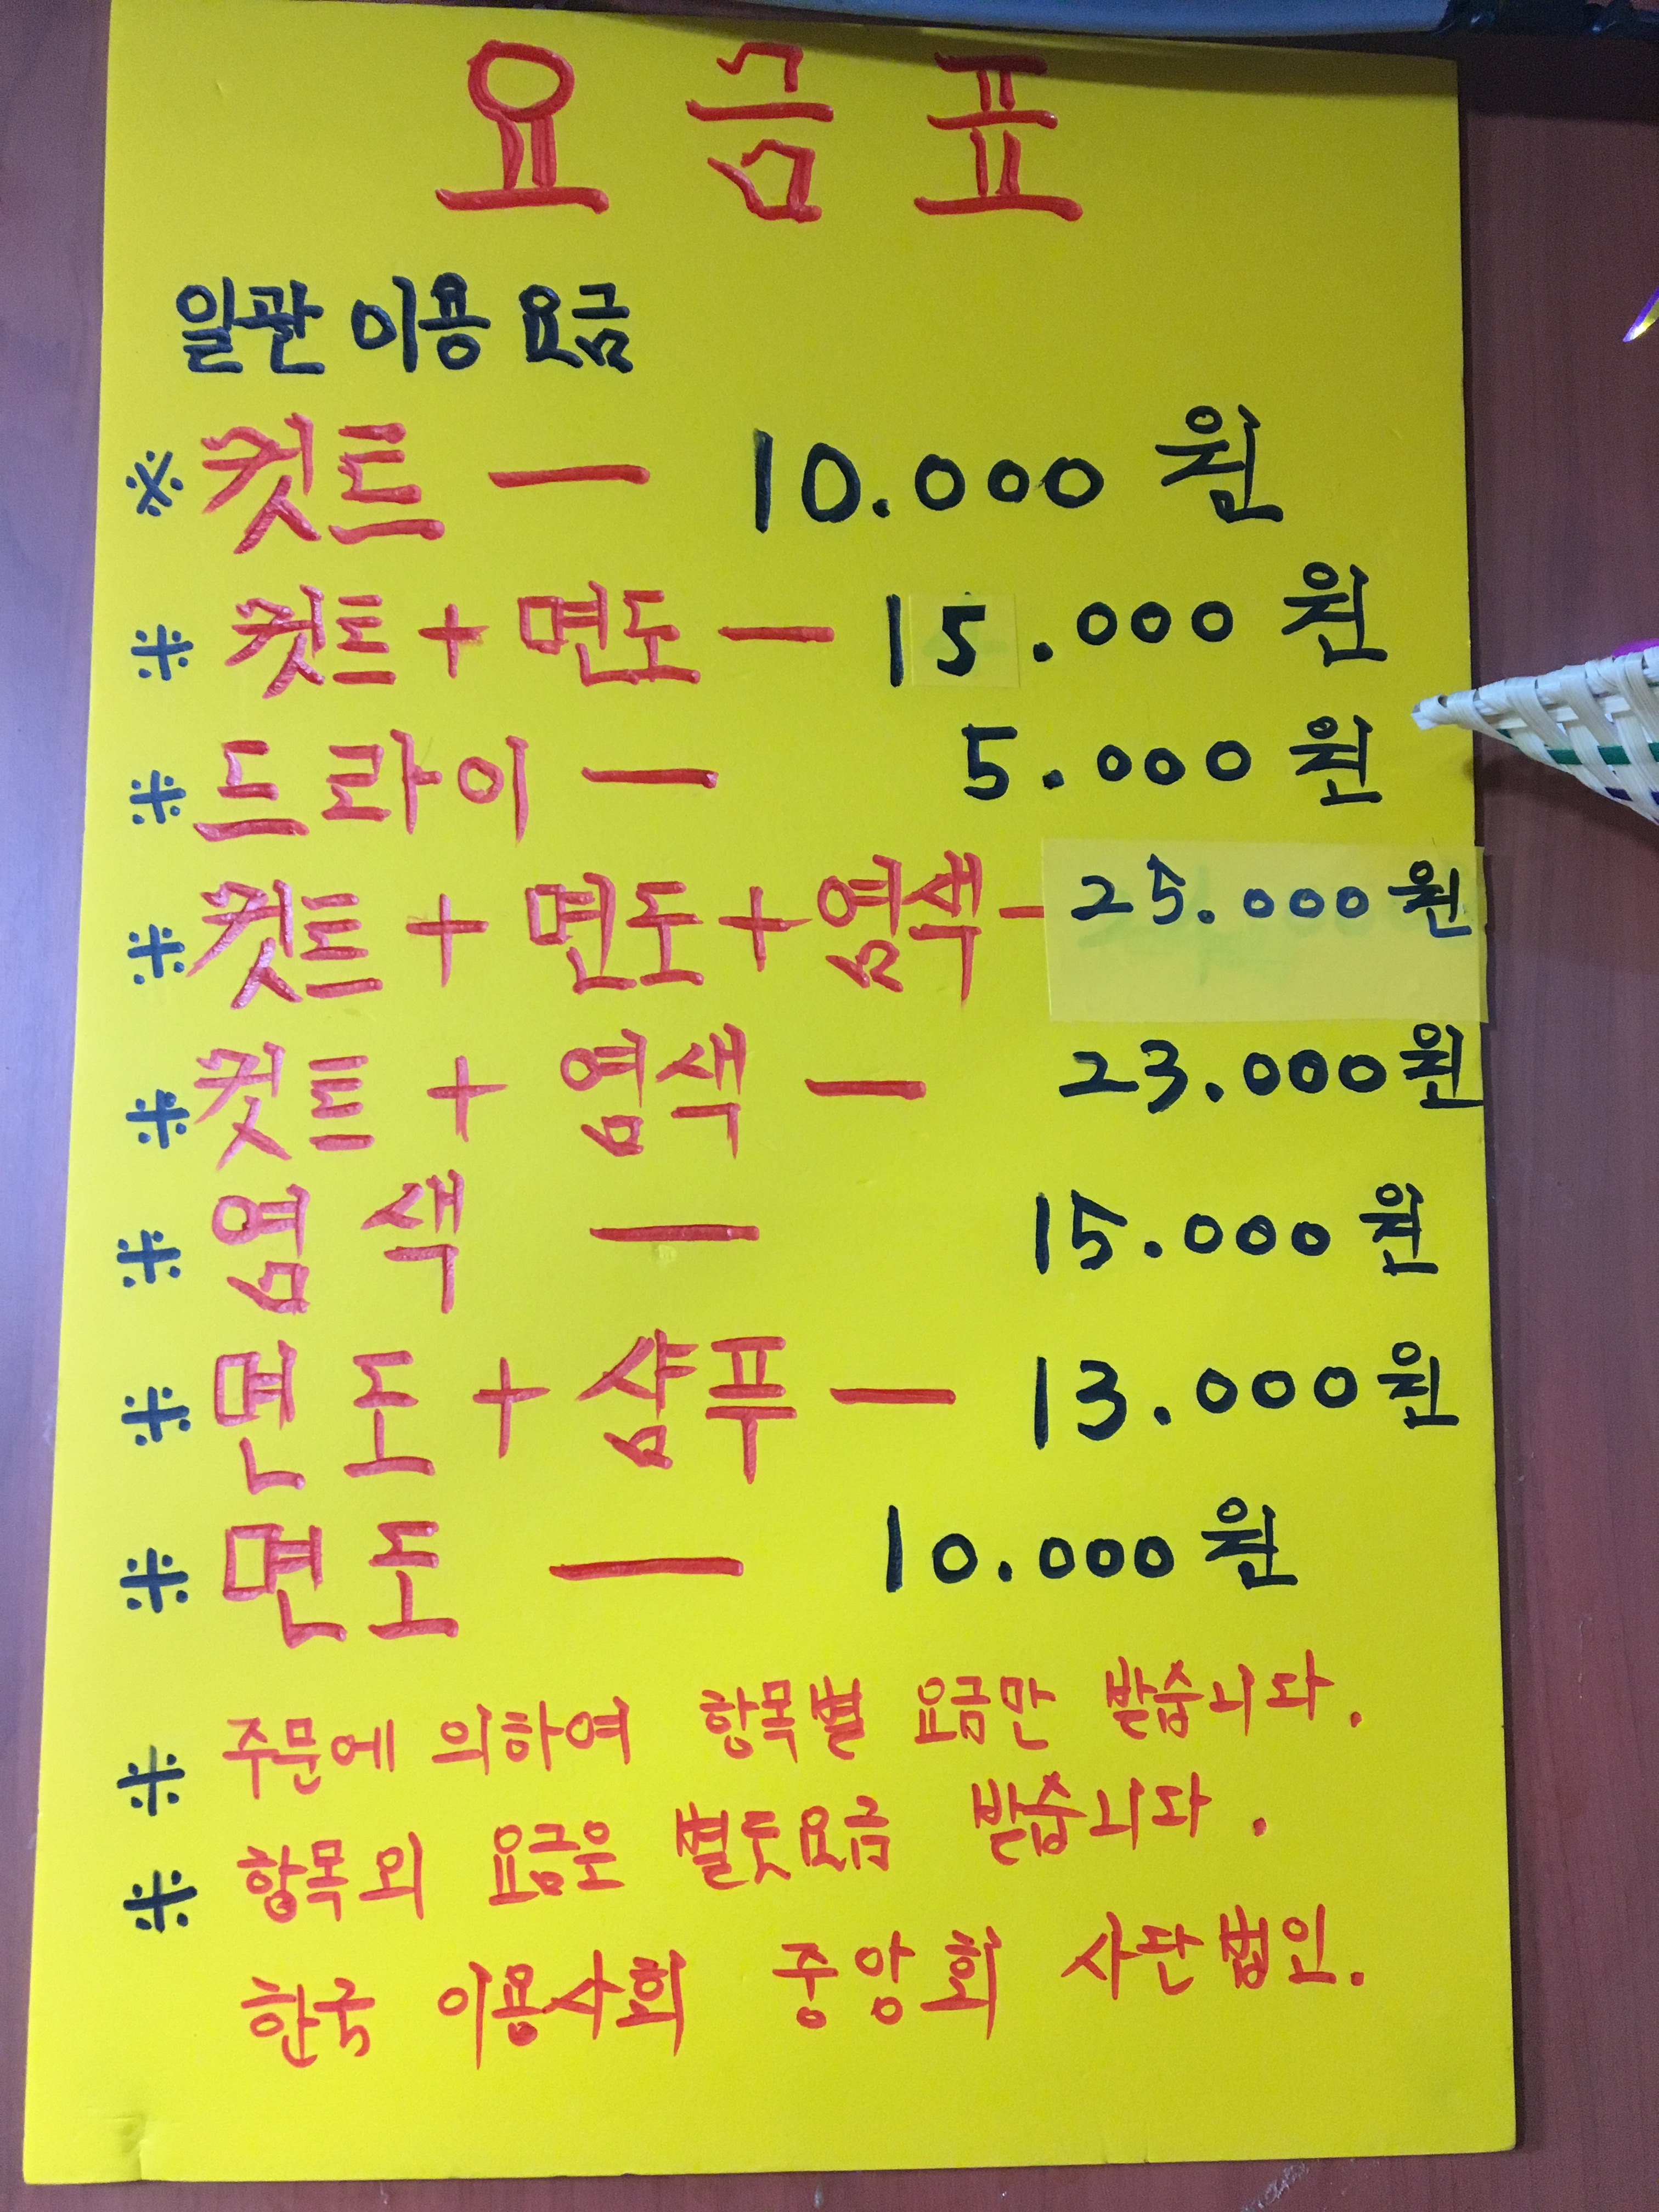 요금표
일관 이용 요금
※ 컷트 — 10.000 원
※ 컷트 + 면도 — 15.000 원
※ 드라이 — 5.000 원
※ 컷트 + 면도 + 염색 — 25.000 원
※ 컷트 + 염색 — 23.000 원
※ 염색 — 15.000 원
※ 면도 + 샴푸 — 13.000 원
※ 면도 — 10.000 원
※ 주문에 의하여 항목별 요금만 받습니다.
※ 항목외 요금은 별돗요금 받습니다.
한국 이용사회 중앙회 사단법인.